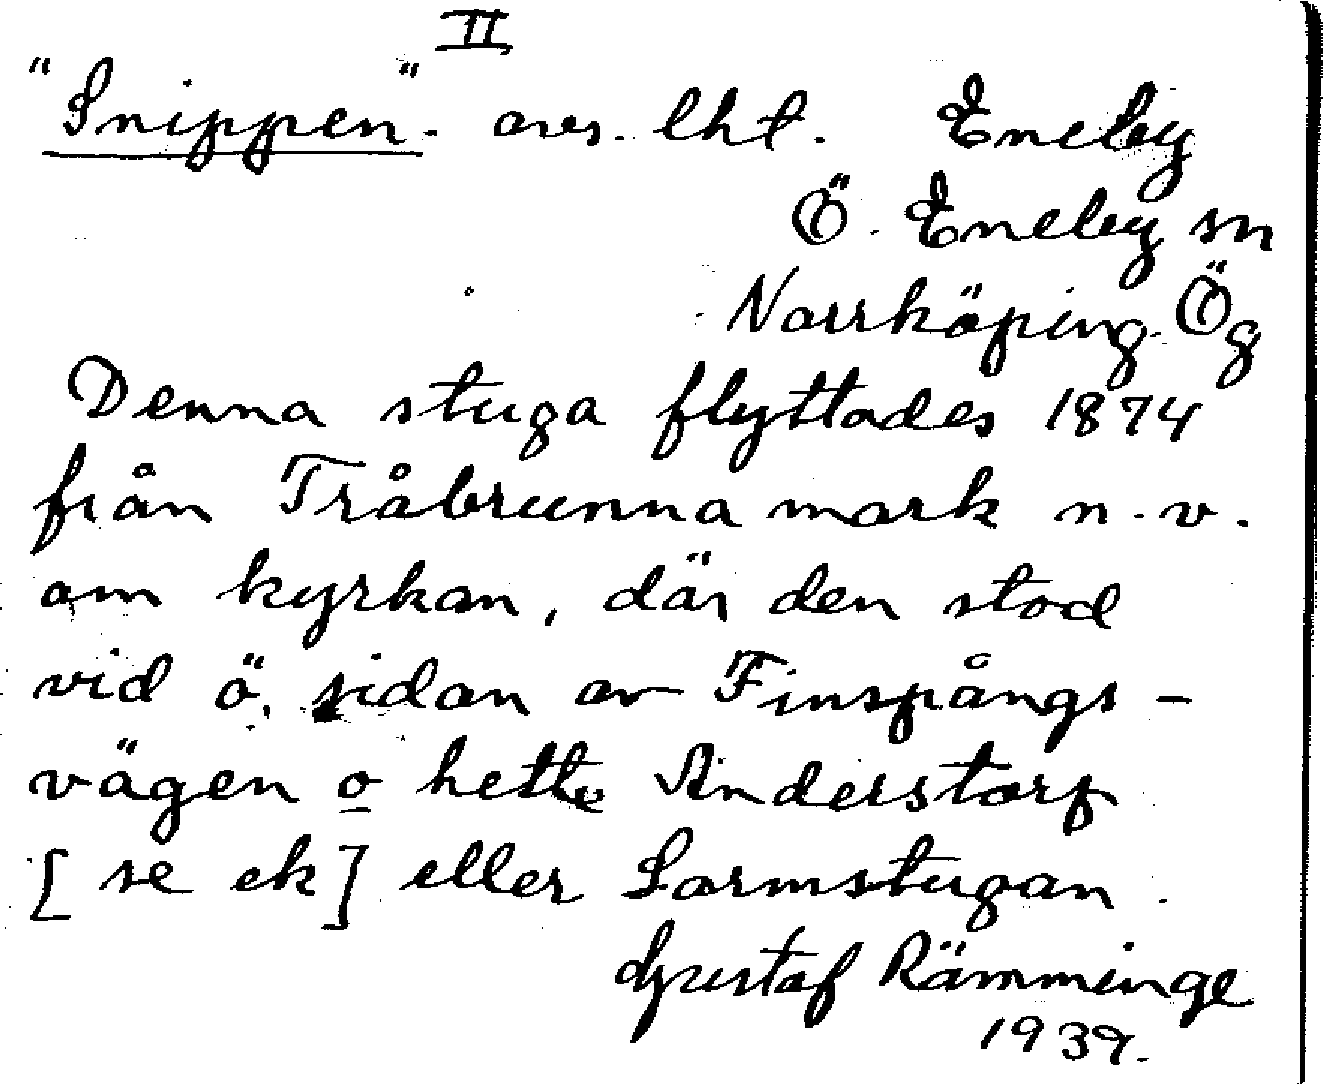 II
"Snippen". avs. lht. Eneby
Ö. Eneby sn
Norrköping. Ög
Denna stuga flyttades 1874
från Tråbrunna mark n.v.
om kyrkan, där den stod
vid ö. sidan av Finspångs-
vägen o hette Anderstorp
[se ek] eller Sormstugan.
Gustaf Rämminge
1939.